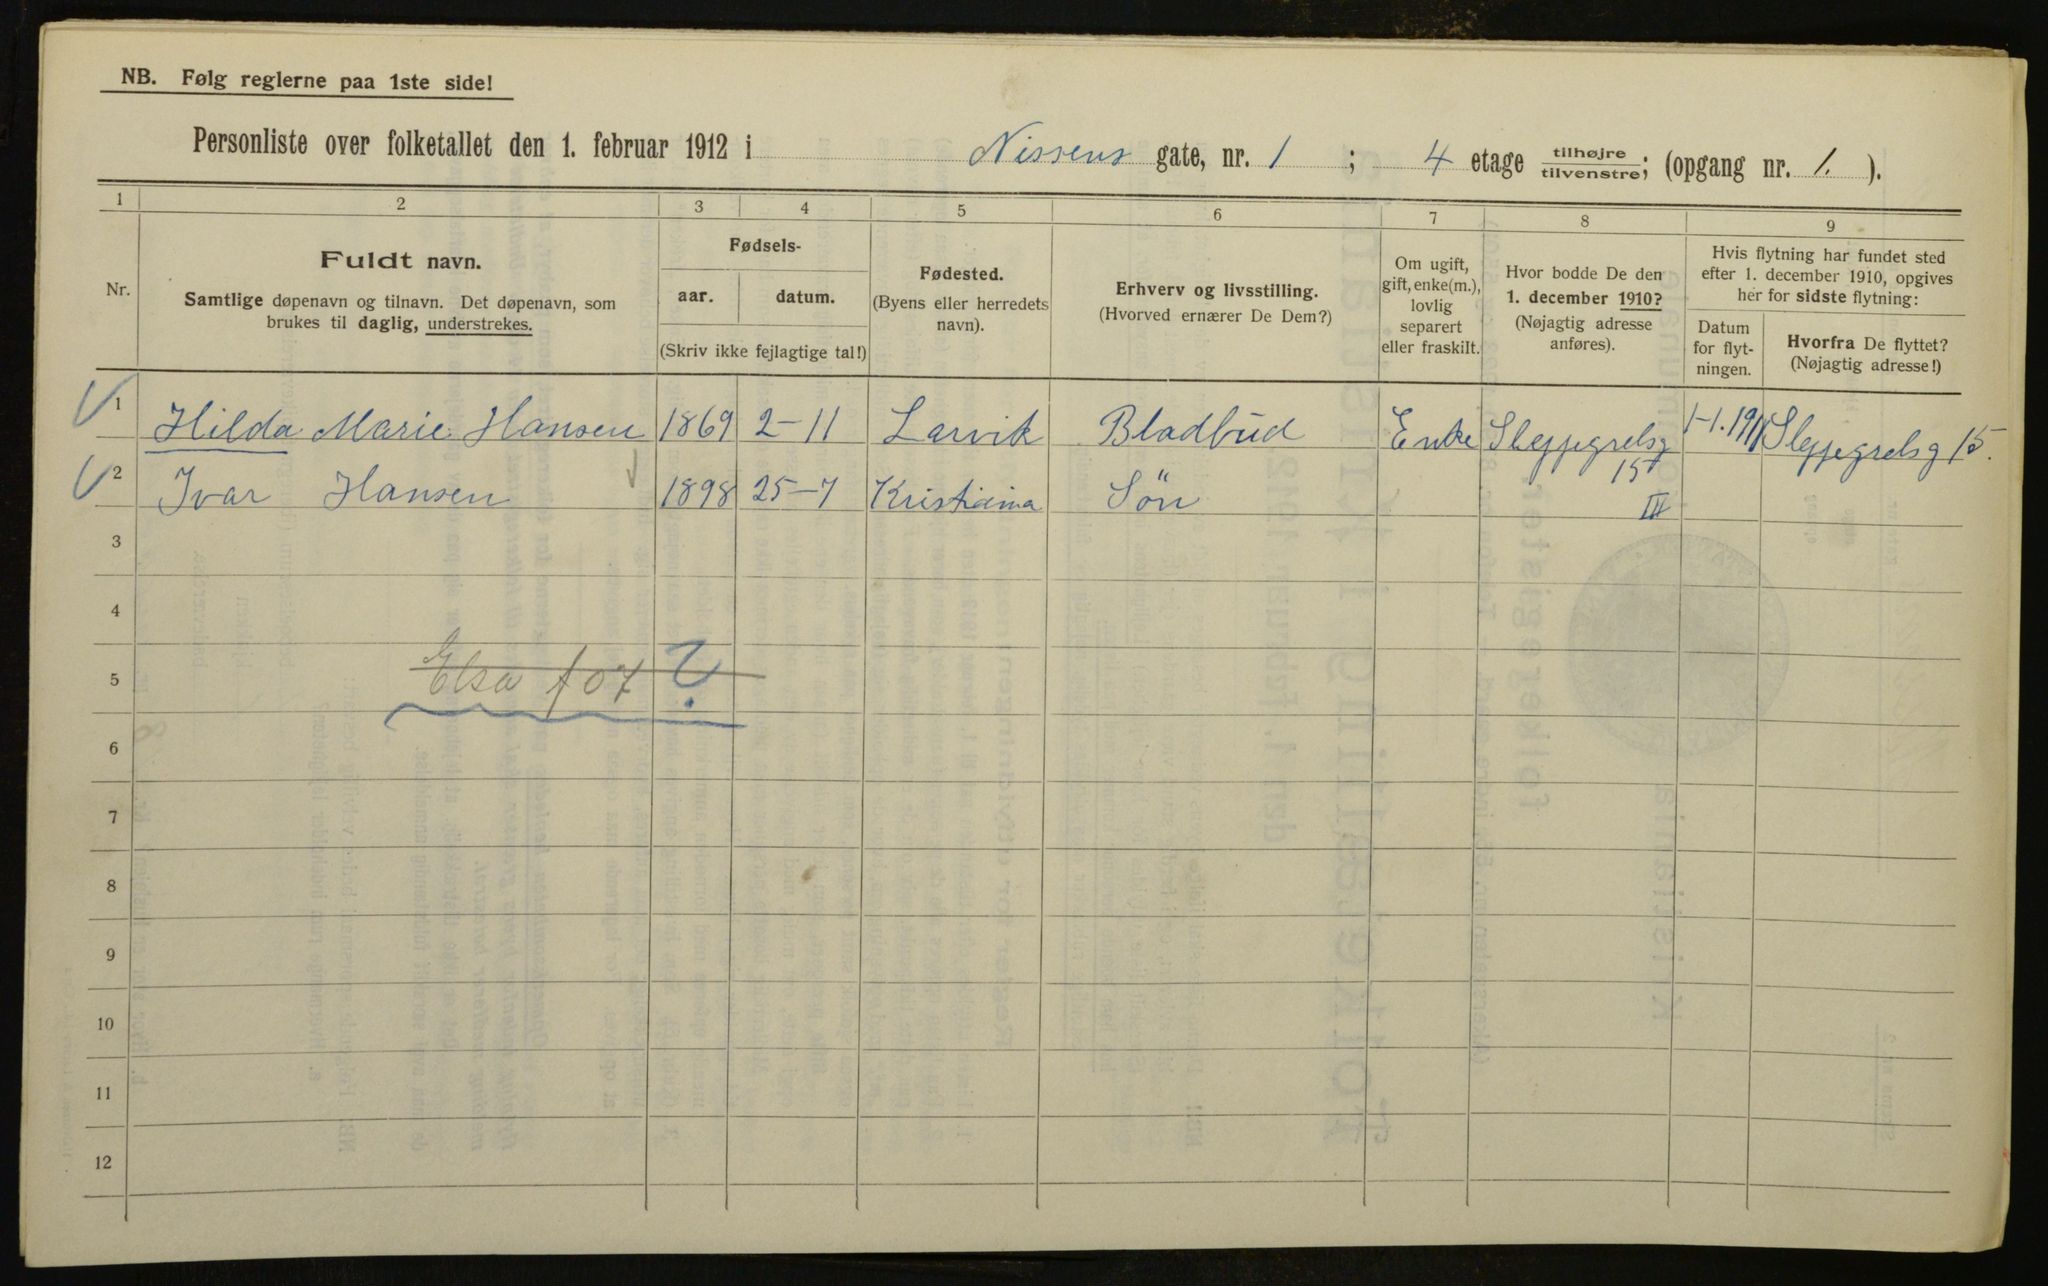 NB. Følg reglerne paa 1ste side!
Personliste over folketallet den 1. februar 1912 i Nissens gate, nr. 1 ; 4 etage tilhøjre/tilvenstre; (opgang nr. 1. ).
1 2 3 4 5 6 7 8 9
Nr.
Fuldt navn.
Samtlige døpenavn og tilnavn. Det døpenavn, som
brukes til daglig, understrekes.
Fødsels-
aar. datum.
(Skriv ikke fejlagtige tal!)
Fødested.
(Byens eller herredets
navn).
Erhverv og livsstilling.
(Hvorved ernærer De Dem?)
Om ugift,
gift, enke(m.),
lovlig
separert
eller fraskilt.
Hvor bodde De den
1. december 1910?
(Nøjagtig adresse
anføres).
Hvis flytning har fundet sted
efter 1. december 1910, opgives
her for sidste flytning:
Datum
for flyt-
ningen.
Hvorfra De flyttet?
(Nøjagtig adresse!)
1 Hilda Marie Hansen 1869 2-11 Larvik Bladbud Enke Sleppegrelsg 1-1.1911 Sleppegrelsg 15.
15
2 Ivar Hansen 1898 25-7 Kristiania Søn
III
3
4
5 Elsa f 07 ?
6
7
8
9
10
11
12